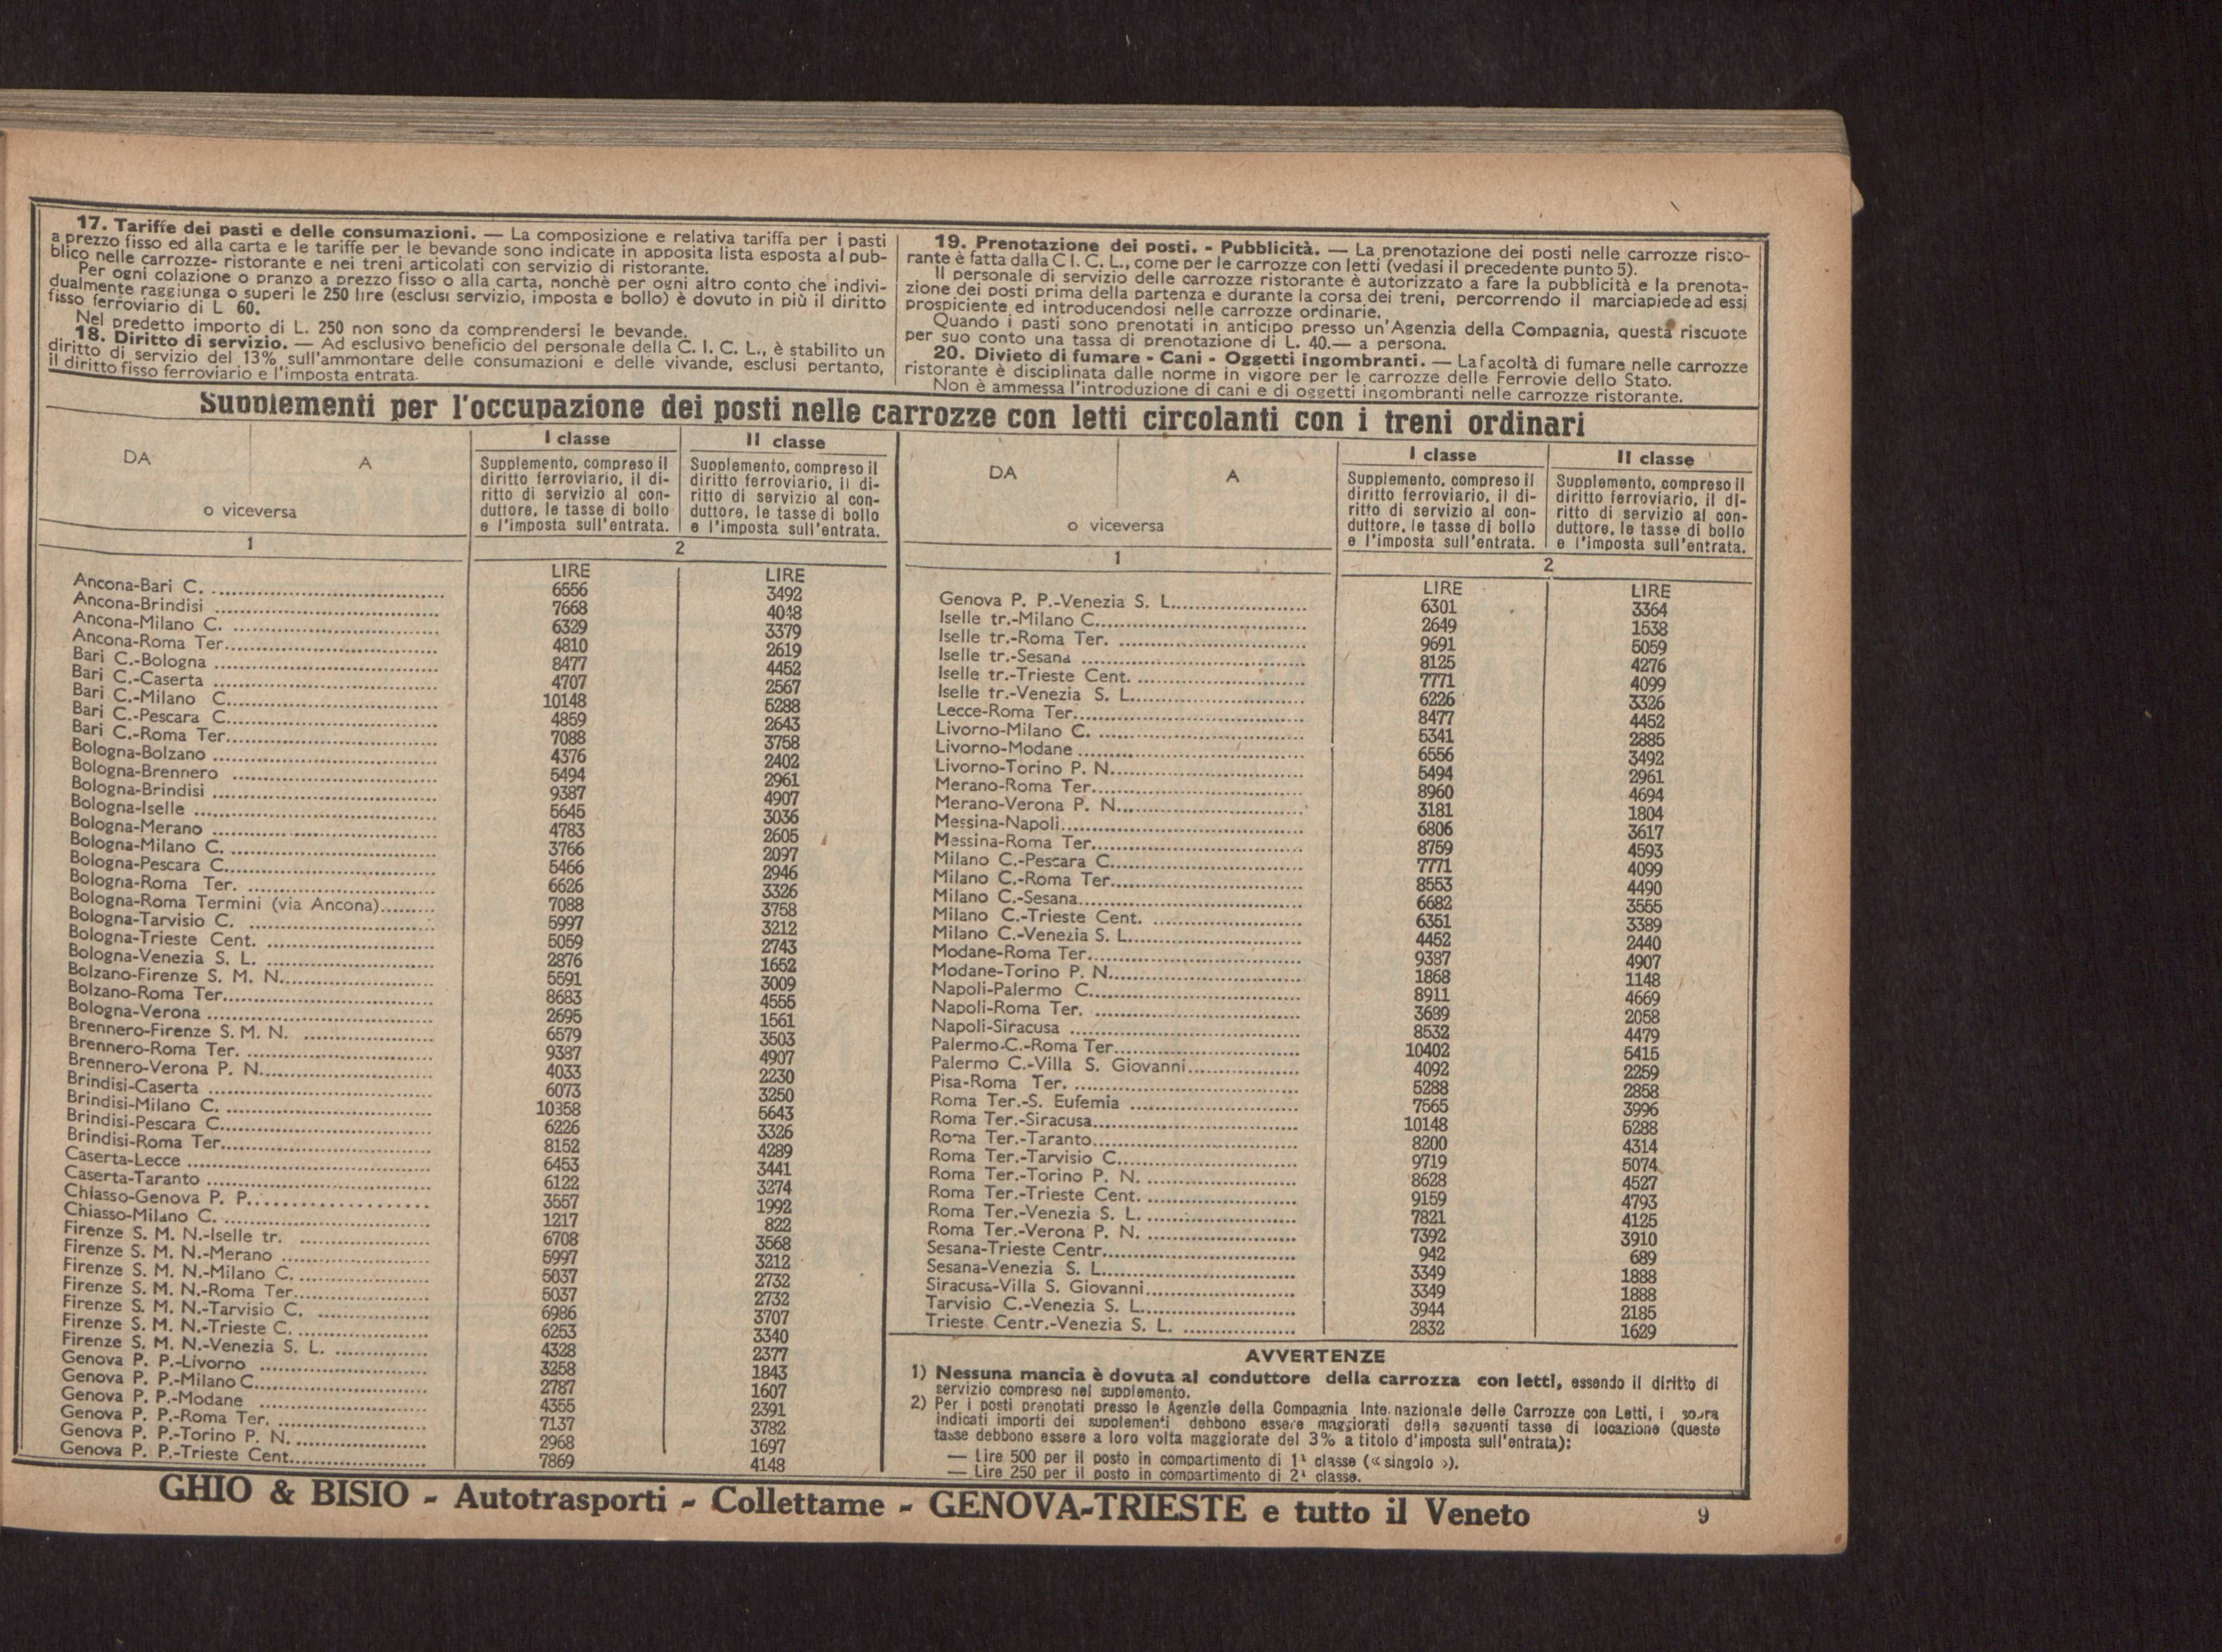 17. Tariffe dei pasti e delle consumazioni. — La composizione e relativa tariffa per i pasti
a prezzo fisso ed alla carta e le tariffe per le bevande sono indicate in apposita lista esposta al pub-
blico nelle carrozze- ristorante e nei treni articolati con servizio di ristorante.
Per ogni colazione o pranzo a prezzo fisso o alla carta, nonchè per ogni altro conto che indivi-
dualmente raggiunga o superi le 250 lire (esclusi servizio, imposta e bollo) è dovuto in più il diritto
fisso ferroviario di L 60.
Nel predetto importo di L. 250 non sono da comprendersi le bevande.
18. Diritto di servizio. — Ad esclusivo beneficio del personale della C. I. C. L., è stabilito un
diritto di servizio del 13% sull'ammontare delle consumazioni e delle vivande, esclusi pertanto,
il diritto fisso ferroviario e l'imposta entrata.
19. Prenotazione dei posti. - Pubblicità. — La prenotazione dei posti nelle carrozze risto-
rante è fatta dalla C I. C. L., come per le carrozze con letti (vedasi il precedente punto 5).
Il personale di servizio delle carrozze ristorante è autorizzato a fare la pubblicità e la prenota-
zione dei posti prima della partenza e durante la corsa dei treni, percorrendo il marciapiede ad essi
prospiciente ed introducendosi nelle carrozze ordinarie.
Quando i pasti sono prenotati in anticipo presso un'Agenzia della Compagnia, questa riscuote
per suo conto una tassa di prenotazione di L. 40.— a persona.
20. Divieto di fumare - Cani - Oggetti ingombranti. — La facoltà di fumare nelle carrozze
ristorante è disciplinata dalle norme in vigore per le carrozze delle Ferrovie dello Stato.
Non è ammessa l'introduzione di cani e di oggetti ingombranti nelle carrozze ristorante.
Supplementi per l'occupazione dei posti nelle carrozze con letti circolanti con i treni ordinari
DA A
o viceversa
I classe
Supplemento, compreso il
diritto ferroviario, il di-
ritto di servizio al con-
duttore, le tasse di bollo
e l'imposta sull'entrata.
II classe
Supplemento, compreso il
diritto ferroviario, il di-
ritto di servizio al con-
duttore, le tasse di bollo
e l'imposta sull'entrata.
1 2
LIRE LIRE
Ancona-Bari C. 6556 3492
Ancona-Brindisi 7668 4048
Ancona-Milano C. 6329 3379
Ancona-Roma Ter. 4810 2619
Bari C.-Bologna 8477 4452
Bari C.-Caserta 4707 2567
Bari C.-Milano C. 10148 5288
Bari C.-Pescara C. 4859 2643
Bari C.-Roma Ter. 7088 3758
Bologna-Bolzano 4376 2402
Bologna-Brennero 5494 2961
Bologna-Brindisi 9387 4907
Bologna-Iselle 5645 3036
Bologna-Merano 4783 2605
Bologna-Milano C. 3766 2097
Bologna-Pescara C. 5466 2946
Bologna-Roma Ter. 6626 3326
Bologna-Roma Termini (via Ancona) 7088 3758
Bologna-Tarvisio C. 5997 3212
Bologna-Trieste Cent. 5059 2743
Bologna-Venezia S. L. 2876 1652
Bolzano-Firenze S. M. N. 5591 3009
Bolzano-Roma Ter. 8683 4555
Bologna-Verona 2695 1561
Brennero-Firenze S. M. N. 6579 3503
Brennero-Roma Ter. 9387 4907
Brennero-Verona P. N. 4033 2230
Brindisi-Caserta 6073 3250
Brindisi-Milano C. 10358 5643
Brindisi-Pescara C. 6226 3326
Brindisi-Roma Ter. 8152 4289
Caserta-Lecce 6453 3441
Caserta-Taranto 6122 3274
Chiasso-Genova P. P. 3557 1992
Chiasso-Milano C. 1217 822
Firenze S. M. N.-Iselle tr. 6708 3568
Firenze S. M. N.-Merano 5997 3212
Firenze S. M. N.-Milano C. 5037 2732
Firenze S. M. N.-Roma Ter. 5037 2732
Firenze S. M. N.-Tarvisio C. 6986 3707
Firenze S. M. N.-Trieste C. 6253 3340
Firenze S. M. N.-Venezia S. L. 4328 2377
Genova P. P.-Livorno 3258 1843
Genova P. P.-Milano C. 2787 1607
Genova P. P.-Modane 4355 2391
Genova P. P.-Roma Ter. 7137 3782
Genova P. P.-Torino P. N. 2968 1697
Genova P. P.-Trieste Cent. 7869 4148
DA A
o viceversa
I classe
Supplemento, compreso il
diritto ferroviario, il di-
ritto di servizio al con-
duttore, le tasse di bollo
e l'imposta sull'entrata.
II classe
Supplemento, compreso il
diritto ferroviario, il di-
ritto di servizio al con-
duttore, le tasse di bollo
e l'imposta sull'entrata.
1 2
LIRE LIRE
Genova P. P.-Venezia S. L. 6301 3364
Iselle tr.-Milano C. 2649 1538
Iselle tr.-Roma Ter. 9691 5059
Iselle tr.-Sesana 8125 4276
Iselle tr.-Trieste Cent. 7771 4099
Iselle tr.-Venezia S. L. 6226 3326
Lecce-Roma Ter. 8477 4452
Livorno-Milano C. 5341 2885
Livorno-Modane 6556 3492
Livorno-Torino P. N. 5494 2961
Merano-Roma Ter. 8960 4694
Merano-Verona P. N. 3181 1804
Messina-Napoli 6806 3617
Messina-Roma Ter. 8759 4593
Milano C.-Pescara C. 7771 4099
Milano C.-Roma Ter. 8553 4490
Milano C.-Sesana 6682 3555
Milano C.-Trieste Cent. 6351 3389
Milano C.-Venezia S. L. 4452 2440
Modane-Roma Ter. 9387 4907
Modane-Torino P. N. 1868 1148
Napoli-Palermo C. 8911 4669
Napoli-Roma Ter. 3689 2058
Napoli-Siracusa 8532 4479
Palermo-C.-Roma Ter. 10402 5415
Palermo C.-Villa S. Giovanni 4092 2259
Pisa-Roma Ter. 5288 2858
Roma Ter.-S. Eufemia 7565 3996
Roma Ter.-Siracusa 10148 5288
Roma Ter.-Taranto 8200 4314
Roma Ter.-Tarvisio C. 9719 5074
Roma Ter.-Torino P. N. 8628 4527
Roma Ter.-Trieste Cent. 9159 4793
Roma Ter.-Venezia S. L. 7821 4125
Roma Ter.-Verona P. N. 7392 3910
Sesana-Trieste Centr. 942 689
Sesana-Venezia S. L. 3349 1888
Siracusa-Villa S. Giovanni 3349 1888
Tarvisio C.-Venezia S. L. 3944 2185
Trieste Centr.-Venezia S. L. 2832 1629
AVVERTENZE
1) Nessuna mancia è dovuta al conduttore della carrozza con letti, essendo il diritto di
servizio compreso nel supplemento.
2) Per i posti prenotati presso le Agenzie della Compagnia Inte.nazionale delle Carrozze con Letti, i sopra
indicati importi dei supplementi debbono essere maggiorati delle seguenti tasse di locazione (queste
tasse debbono essere a loro volta maggiorate del 3% a titolo d'imposta sull'entrata):
— Lire 500 per il posto in compartimento di 1ª classe (« singolo »).
— Lire 250 per il posto in compartimento di 2ª classe.
GHIO & BISIO - Autotrasporti - Collettame - GENOVA-TRIESTE e tutto il Veneto
9